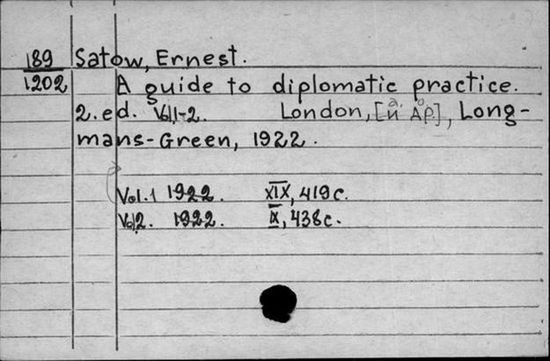 189 Satow, Ernest.
1202 A guide to diplomatic practice.
2.ed. Vol.1-2. London, [и др], Long-
mans-Green, 1922.
Vol.1 1922. XIX, 419c.
Vol2. 1922. IX, 438c.